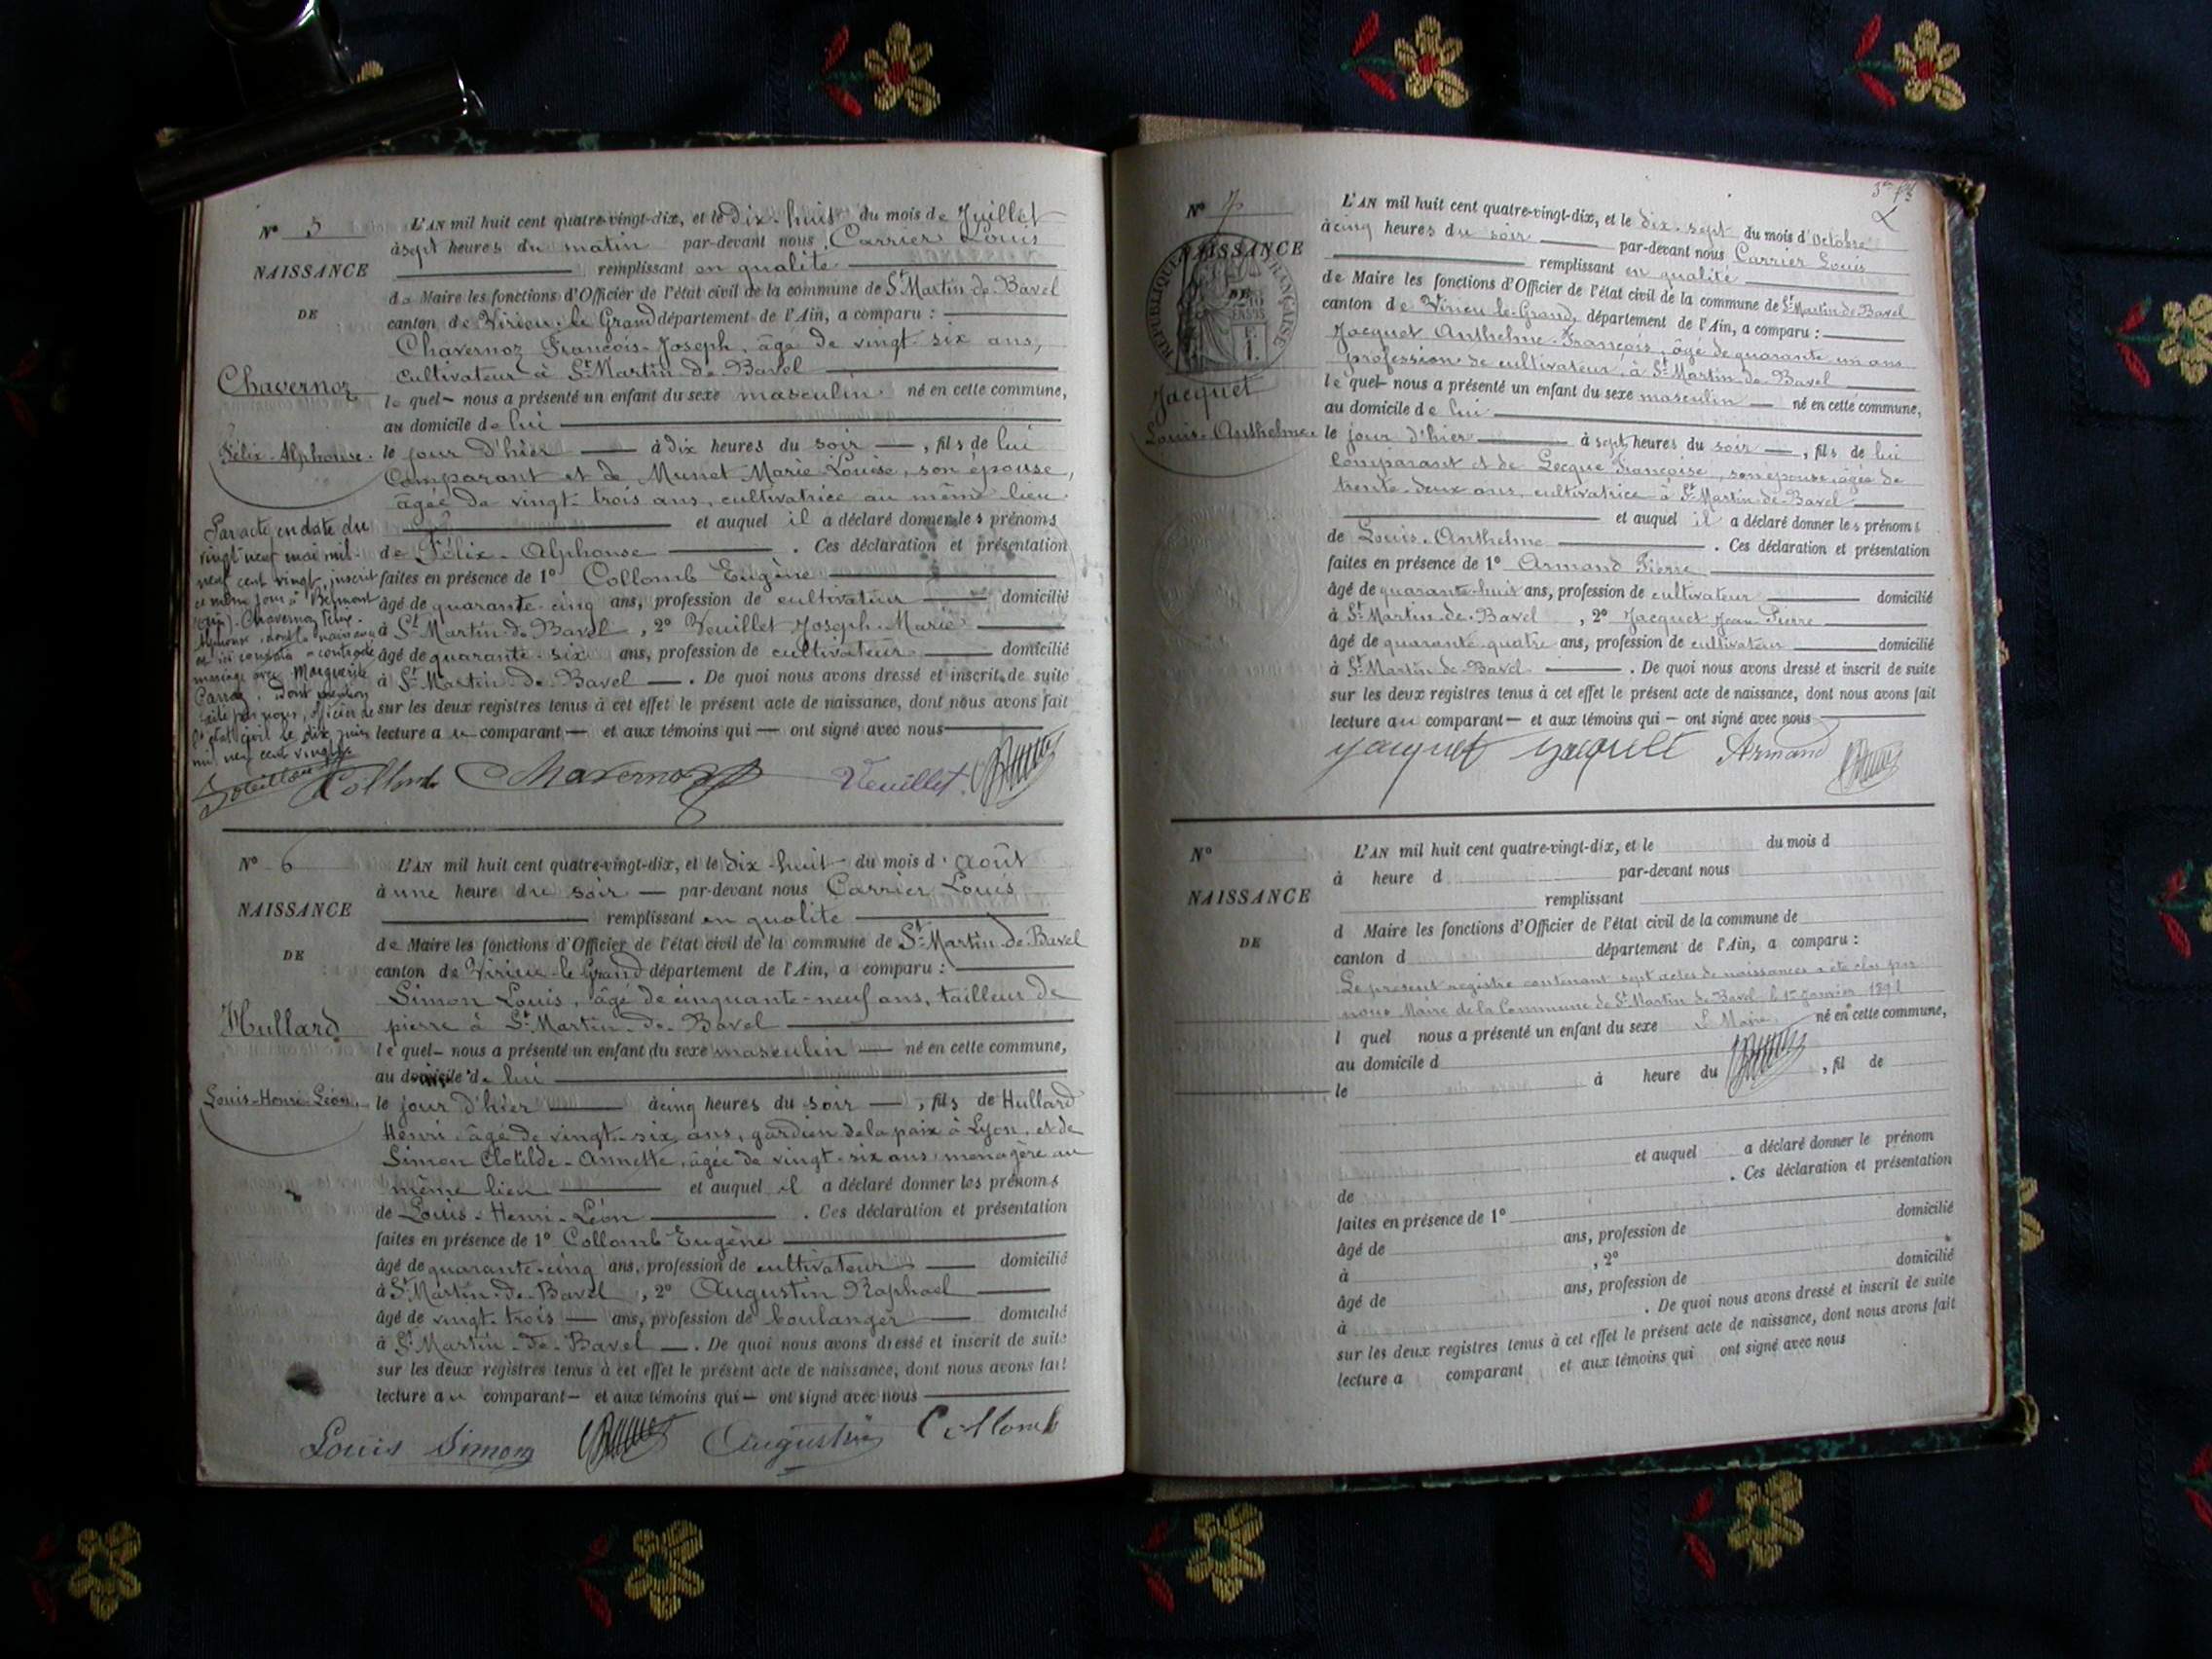 N° 5
NAISSANCE
DE
Chavernoz
Félix-Alphonse.
L'AN mil huit cent quatre-vingt-dix, et le dix-huit du mois de Juillet
à sept heures du matin par-devant nous Carrier Louis
remplissant en qualité
de Maire les fonctions d'Officier de l'état civil de la commune de St Martin de Bavel
canton de Virieu-le-Grand département de l'Ain, a comparu :
Chavernoz François-Joseph, âgé de vingt-six ans,
cultivateur à St Martin-de-Bavel
le quel nous a présenté un enfant du sexe masculin né en cette commune,
au domicile de lui
le jour d'hier à dix heures du soir, fils de lui
Comparant et de Munet Marie Louise, son épouse,
âgée de vingt-trois ans, cultivatrice au même lieu.
et auquel il a déclaré donner les prénoms
de Félix-Alphonse. Ces déclaration et présentation
faites en présence de 1° Collomb Eugène
âgé de quarante-cinq ans, profession de cultivateur domicilié
à St Martin-de-Bavel, 2° Veuillet Joseph-Marie
âgé de quarante-six ans, profession de cultivateur domicilié
à St Martin-de-Bavel. De quoi nous avons dressé et inscrit de suite
sur les deux registres tenus à cet effet le présent acte de naissance, dont nous avons fait
lecture au comparant et aux témoins qui ont signé avec nous
Par acte en date du
vingt neuf mai mil
neuf cent vingt, inscrit
ce même jour à Belmont
(Ain). Chavernoz Félix
Alphonse, dont la naissance
est ici constatée a contracté
mariage avec Marguerite
Carraz. Dont mention
faite par nous, officier de
l'état civil le dix juin
mil neuf cent vingt
Collomb Chavernoz Veuillet
N° 6
NAISSANCE
DE
Hullard
Louis-Henri-Léon.
L'AN mil huit cent quatre-vingt-dix, et le dix-huit du mois d'août
à une heure du soir par-devant nous Carrier Louis
remplissant en qualité
de Maire les fonctions d'Officier de l'état civil de la commune de St Martin-de-Bavel
canton de Virieu-le-Grand département de l'Ain, a comparu :
Simon Louis, âgé de cinquante-neuf ans, tailleur de
pierre à St Martin-de-Bavel
le quel nous a présenté un enfant du sexe masculin né en cette commune,
au domicile de lui
le jour d'hier à cinq heures du soir, fils de Hullard
Henri, âgé de vingt-six ans, gardien de la paix à Lyon, et de
Simon Clotilde-Annette, âgée de vingt-six ans ménagère au
même lieu et auquel il a déclaré donner les prénoms
de Louis-Henri-Léon. Ces déclaration et présentation
faites en présence de 1° Collomb Eugène
âgé de quarante-cinq ans, profession de cultivateur domicilié
à St Martin-de-Bavel, 2° Augustin Raphael
âgé de vingt-trois ans, profession de boulanger domicilié
à St Martin-de-Bavel. De quoi nous avons dressé et inscrit de suite
sur les deux registres tenus à cet effet le présent acte de naissance, dont nous avons fait
lecture au comparant et aux témoins qui ont signé avec nous
Louis Simon Augustin Collomb
N° 7
NAISSANCE
DE
RÉPUBLIQUE FRANÇAISE
Jacquet
Louis-Anthelme.
L'AN mil huit cent quatre-vingt-dix, et le dix-sept du mois d'Octobre
à cinq heures du soir par-devant nous Carrier Louis
remplissant en qualité
de Maire les fonctions d'Officier de l'état civil de la commune de St Martin de Bavel
canton de Virieu-le-Grand, département de l'Ain, a comparu :
Jacquet Anthelme-François, âgé de quarante un ans
profession de cultivateur, à St Martin-de-Bavel
le quel nous a présenté un enfant du sexe masculin né en cette commune,
au domicile de lui
le jour d'hier à sept heures du soir, fils de lui
Comparant et de Françoise, son épouse, âgée de
trente-deux ans, cultivatrice à St Martin-de-Bavel
et auquel il a déclaré donner les prénoms
de Louis-Anthelme. Ces déclaration et présentation
faites en présence de 1° Armand Pierre
âgé de quarante-huit ans, profession de cultivateur domicilié
à St Martin-de-Bavel, 2° Jacquet Jean Pierre
âgé de quarante quatre ans, profession de cultivateur domicilié
à St Martin-de-Bavel. De quoi nous avons dressé et inscrit de suite
sur les deux registres tenus à cet effet le présent acte de naissance, dont nous avons fait
lecture au comparant et aux témoins qui ont signé avec nous
Jacquet Jacquet Armand
N°
NAISSANCE
DE
L'AN mil huit cent quatre-vingt-dix, et le du mois d
à heure d par-devant nous
remplissant
d Maire les fonctions d'Officier de l'état civil de la commune de
canton d département de l'Ain, a comparu :
Le présent registre contenant sept actes de naissances a été clos par
nous Maire de la Commune de St Martin de Bavel le 1er Janvier 1891
l quel nous a présenté un enfant du sexe Le Maire né en cette commune,
au domicile d
le à heure du , fil de
et auquel a déclaré donner le prénom
de . Ces déclaration et présentation
faites en présence de 1°
âgé de ans, profession de domicilié
à , 2°
âgé de ans, profession de domicilié
à . De quoi nous avons dressé et inscrit de suite
sur les deux registres tenus à cet effet le présent acte de naissance, dont nous avons fait
lecture a comparant et aux témoins qui ont signé avec nous